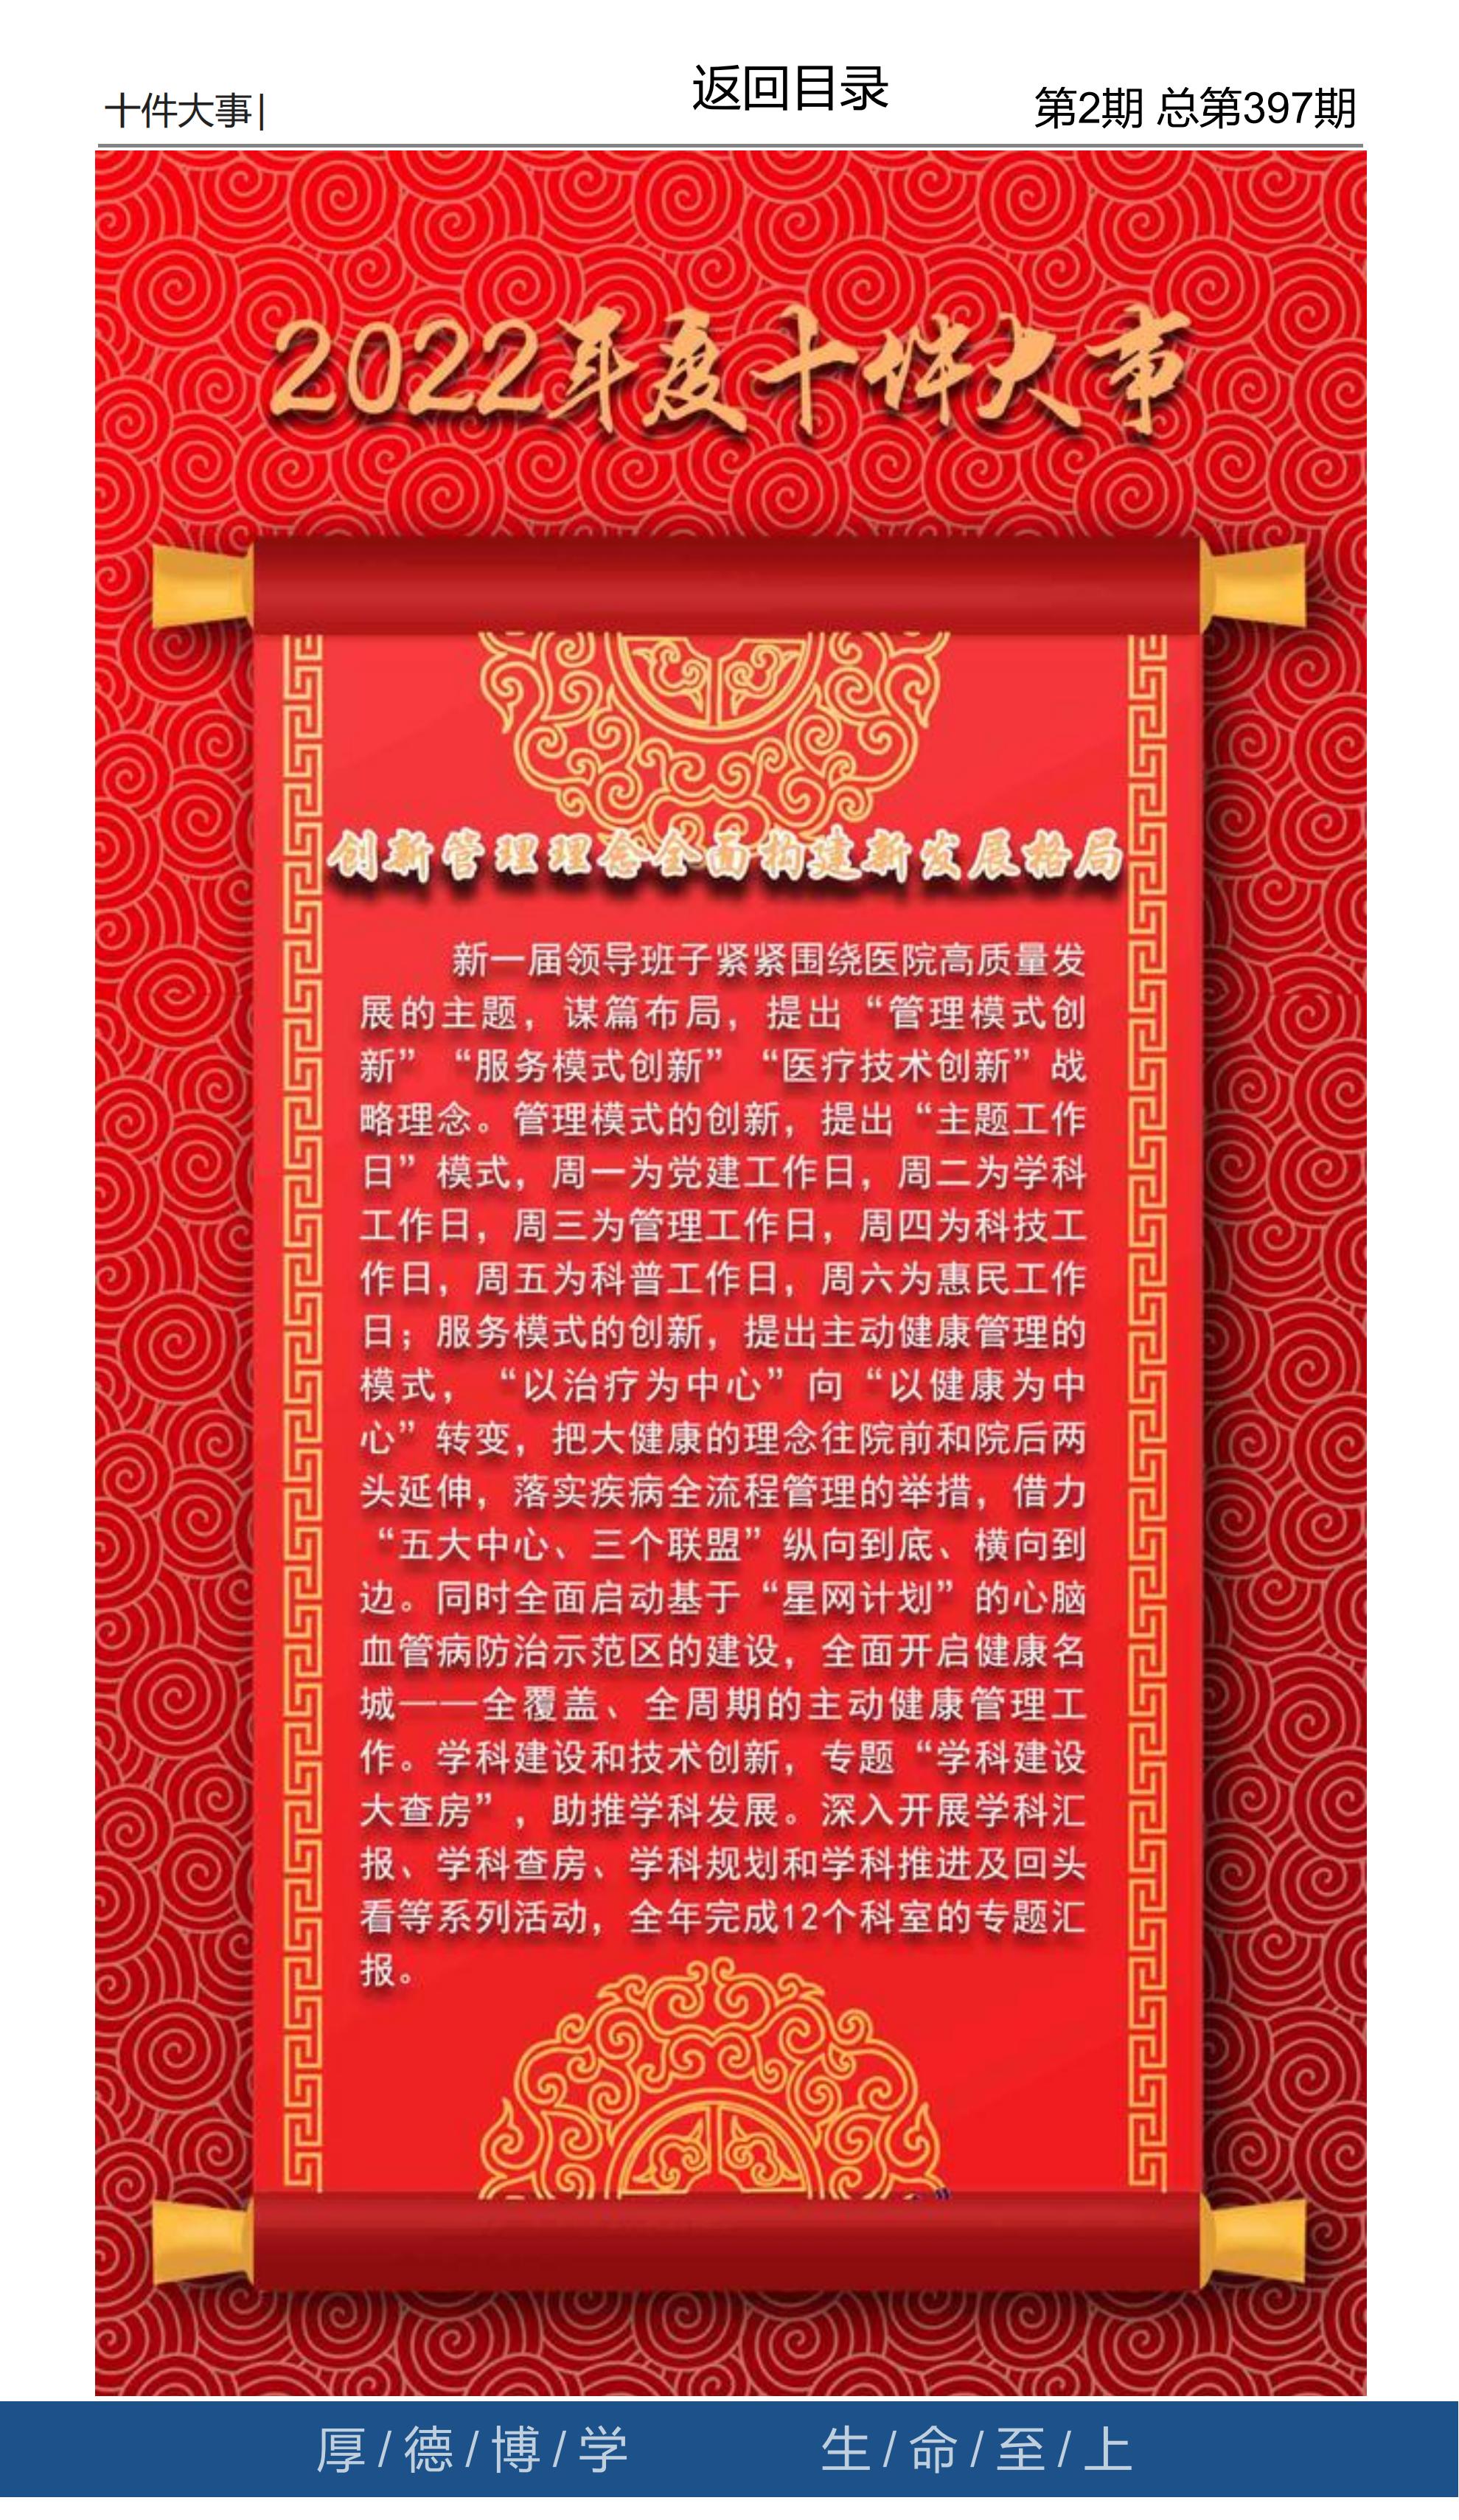 十件大事|
返回目录
第2期 总第397期
2022年度十件大事
创新管理理念全面构建新发展格局
新一届领导班子紧紧围绕医院高质量发
展的主题，谋篇布局，提出“管理模式创
新”“服务模式创新”“医疗技术创新”战
略理念。管理模式的创新，提出“主题工作
日”模式，周一为党建工作日，周二为学科
工作日，周三为管理工作日，周四为科技工
作日，周五为科普工作日，周六为惠民工作
日；服务模式的创新，提出主动健康管理的
模式，“以治疗为中心”向“以健康为中
心”转变，把大健康的理念往院前和院后两
头延伸，落实疾病全流程管理的举措，借力
“五大中心、三个联盟”纵向到底、横向到
边。同时全面启动基于“星网计划”的心脑
血管病防治示范区的建设，全面开启健康名
城——全覆盖、全周期的主动健康管理工
作。学科建设和技术创新，专题“学科建设
大查房”，助推学科发展。深入开展学科汇
报、学科查房、学科规划和学科推进及回头
看等系列活动，全年完成12个科室的专题汇
报。
厚/德/博/学 生/命/至/上